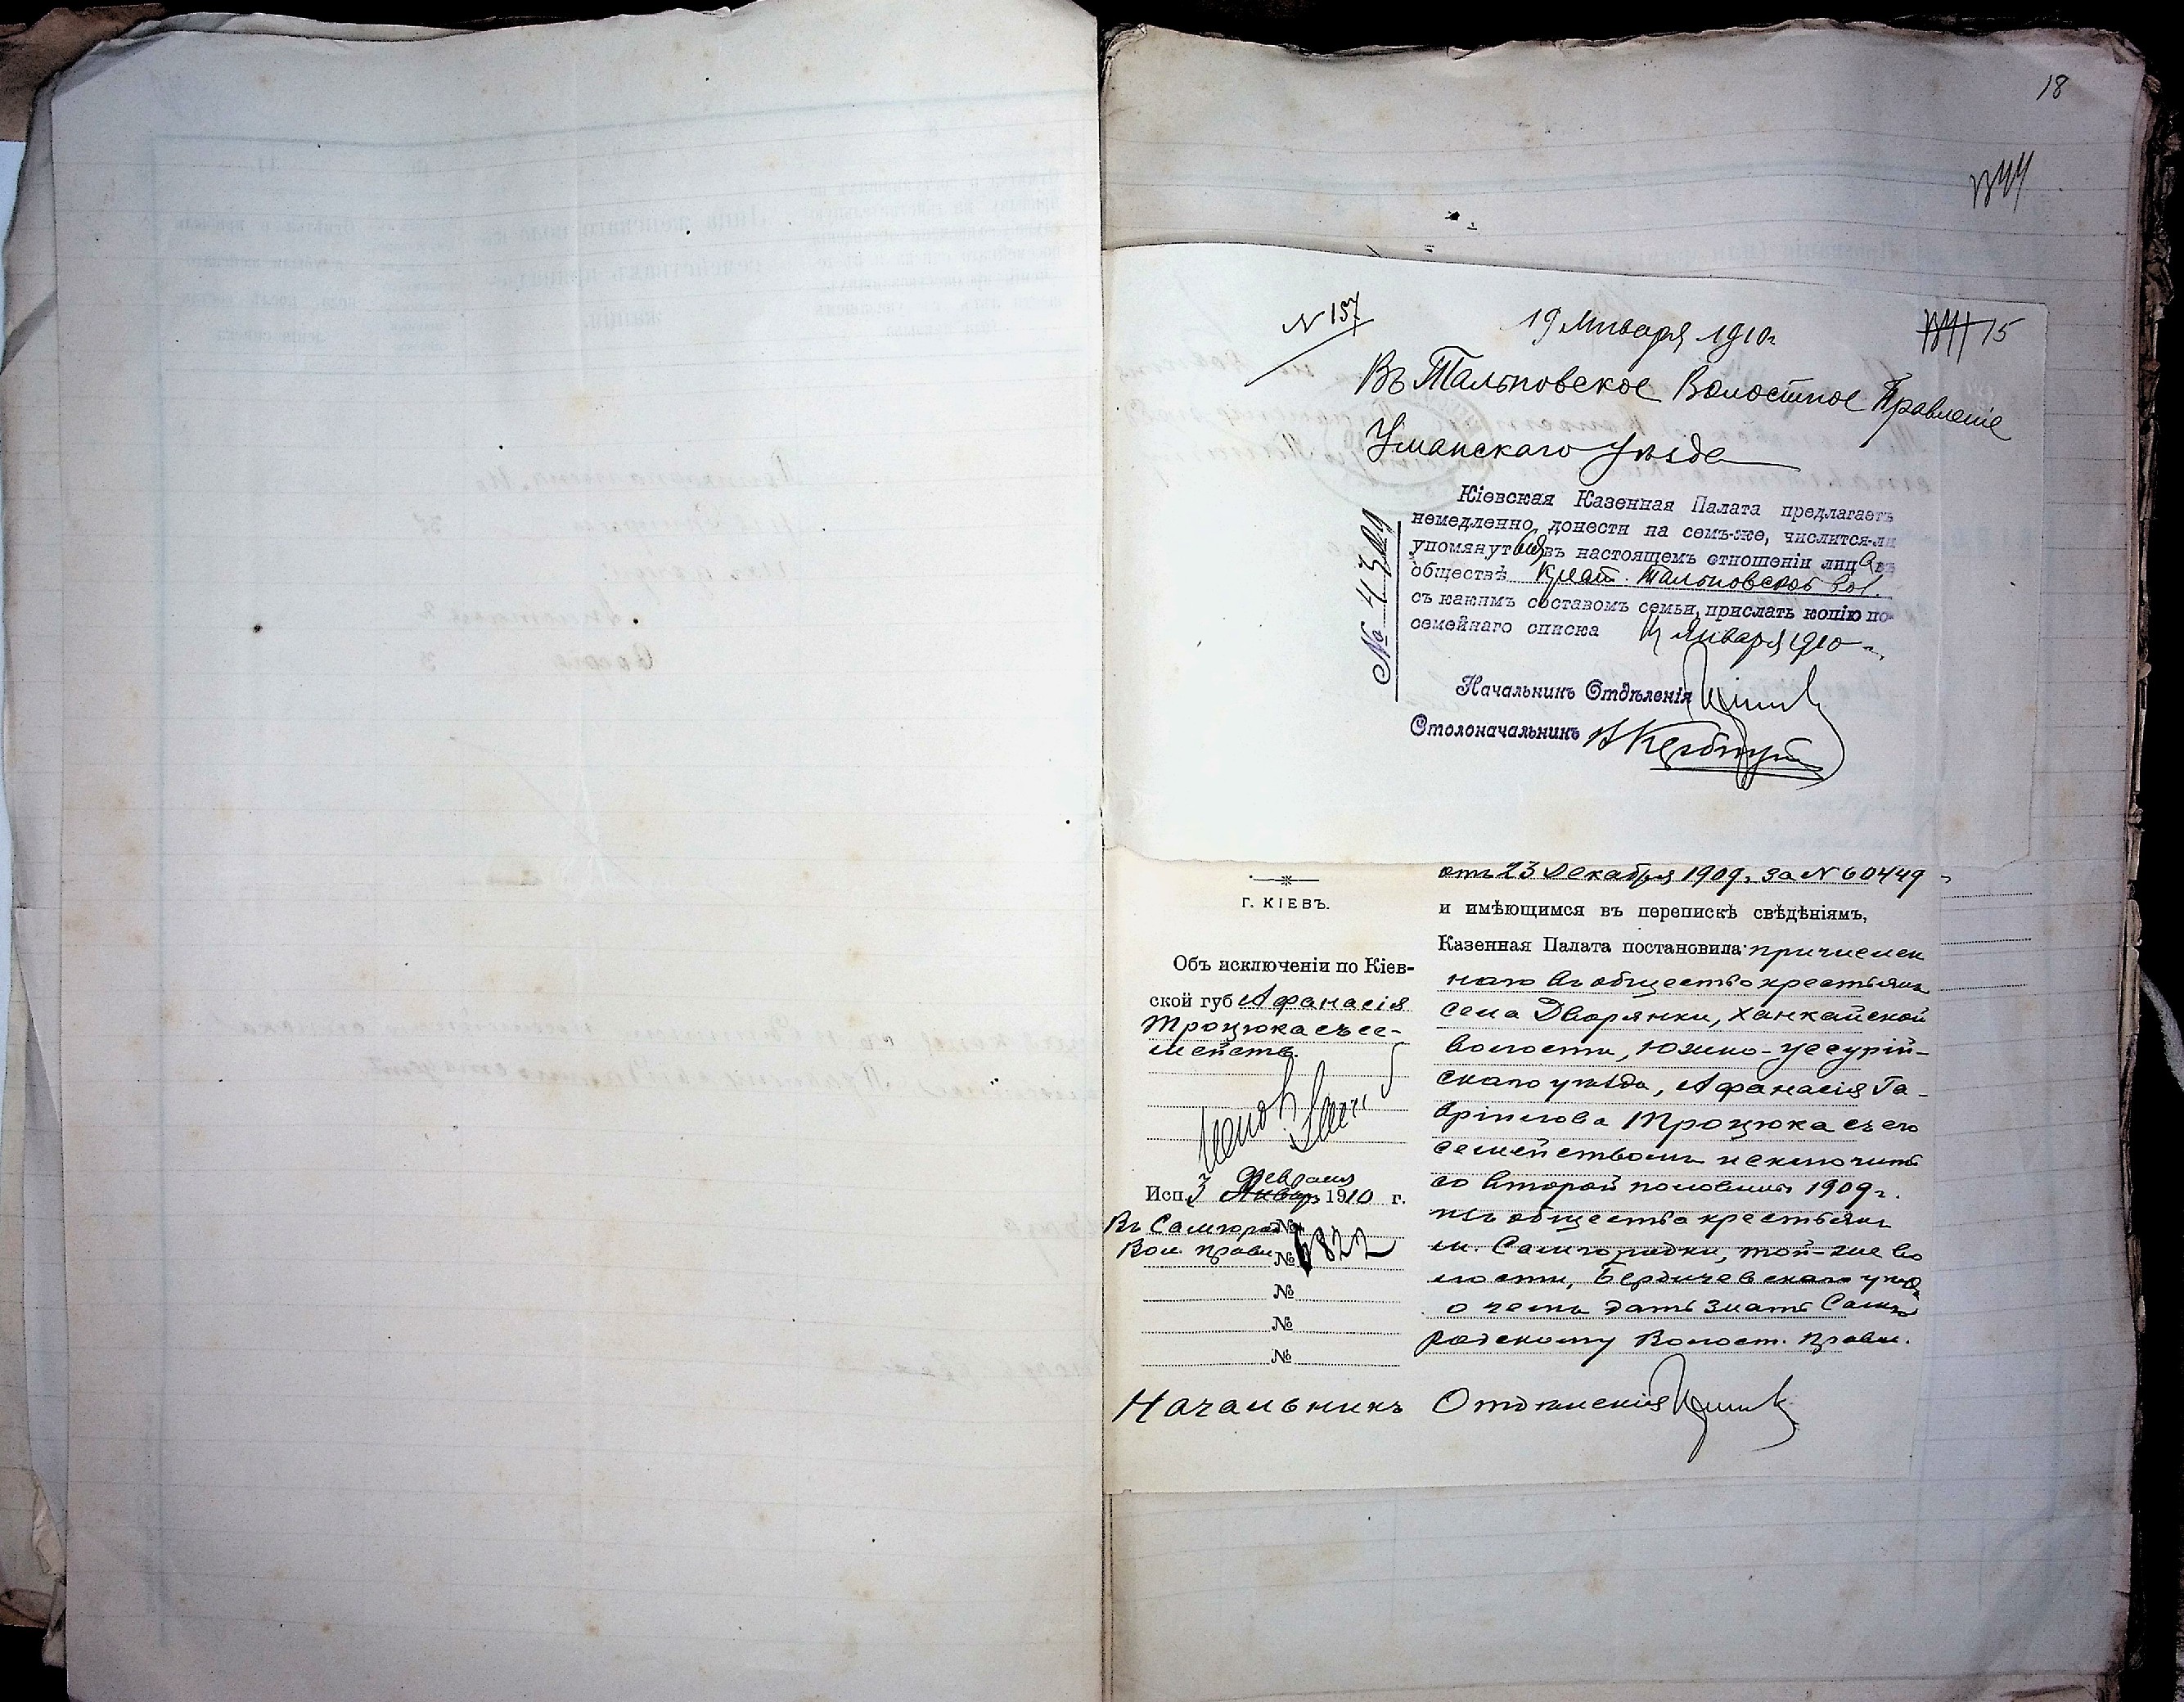 18
N 157
19 Января 1910 г.
15
Въ Тальновское Волостное Правленіе
Уманскаго Уѣзда
Кіевская Казенная Палата предлагаетъ
немедленно донести на семъ-же, числится-ли
упомянутыя въ настоящемъ отношеніи лица въ
обществѣ Крест. Тальновской вол.
съ какимъ составомъ семьи, прислать копію по-
семейнаго списка 14 Января 1910 г.
Начальникъ Отдѣленія
Столоначальникъ
отъ 23 Декабря 1909 г. за N 60449
Г. КІЕВЪ.
и имѣющимся въ перепискѣ свѣдѣніямъ,
Казенная Палата постановила: причислен
наго въ общество крестьянъ
села Дворянки, Ханкайской
волости, Южно-Уссурій-
скаго уѣзда, Афанасія Га-
вріилова Троцюка съ его
семействомъ исключить
со второй половины 1909 г.
изъ общества крестьянъ
м. Самгородки, той-же во
лости, Бердичевскаго уѣзд
о чемъ дать знать Самго
родскому Волост. Правл.
Объ исключеніи по Кіев-
ской губ Афанасія
Троцюка съ се-
мейств.
Исп. 3 Февраля Январ 1910 г.
Въ Самгород №
Вол. Правл №
№
№
№
Начальникъ Отдѣленія